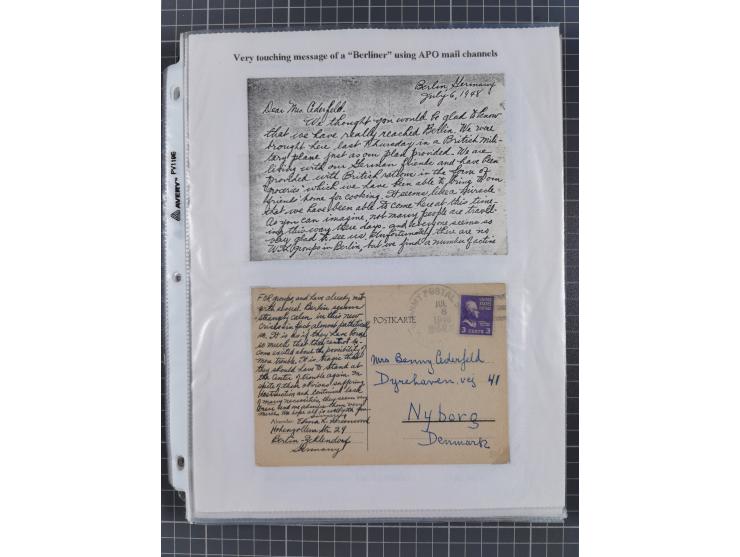 Very touching message of a “Berliner” using APO mail channels
Berlin, Germany
July 6, 1948
Dear Mrs. Cederfeld.
We thought you would to glad to know
that we have really reached Berlin. We were
brought here last Thursday in a British mili-
tary plane just as our plad provided. We are
living with our German friends and have been
provided with British rations in the form of
"groceries" which we have been able to bring to our
friends home for cooking. It seems like a miracle
that we have been able to come here at this time.
As you can imagine, not many people are travel-
ing this way these days, and everyone seems so
very glad to see us. Unfortunately there are no
groups in Berlin, but we find a number of active
FOR groups and have already met
with several. Berlin seems
strangely calm in this new
crisis in fact almost pathetically
so. It is as if they have borne
so much that they cannot be-
come excited about the possibility of
more trouble. It is tragic that
they should have to stand at
the center of trouble again. In
spite of their obvious suffering
destruction and continual lack
of many necessities, they seem very
brave and we admire them very
much. We hope all is well with you
Sincerely
Absender: Edna
Hohenzollern Str. 29
Berlin-Zehlendorf
Germany
POSTKARTE
ARMY POSTAL
JUL
8
UNITED STATES POSTAGE
3 CENTS 3
Mrs Benny Cederfeld
Dyrehavevej 41
Nyborg
Denmark
AVERY PV119E